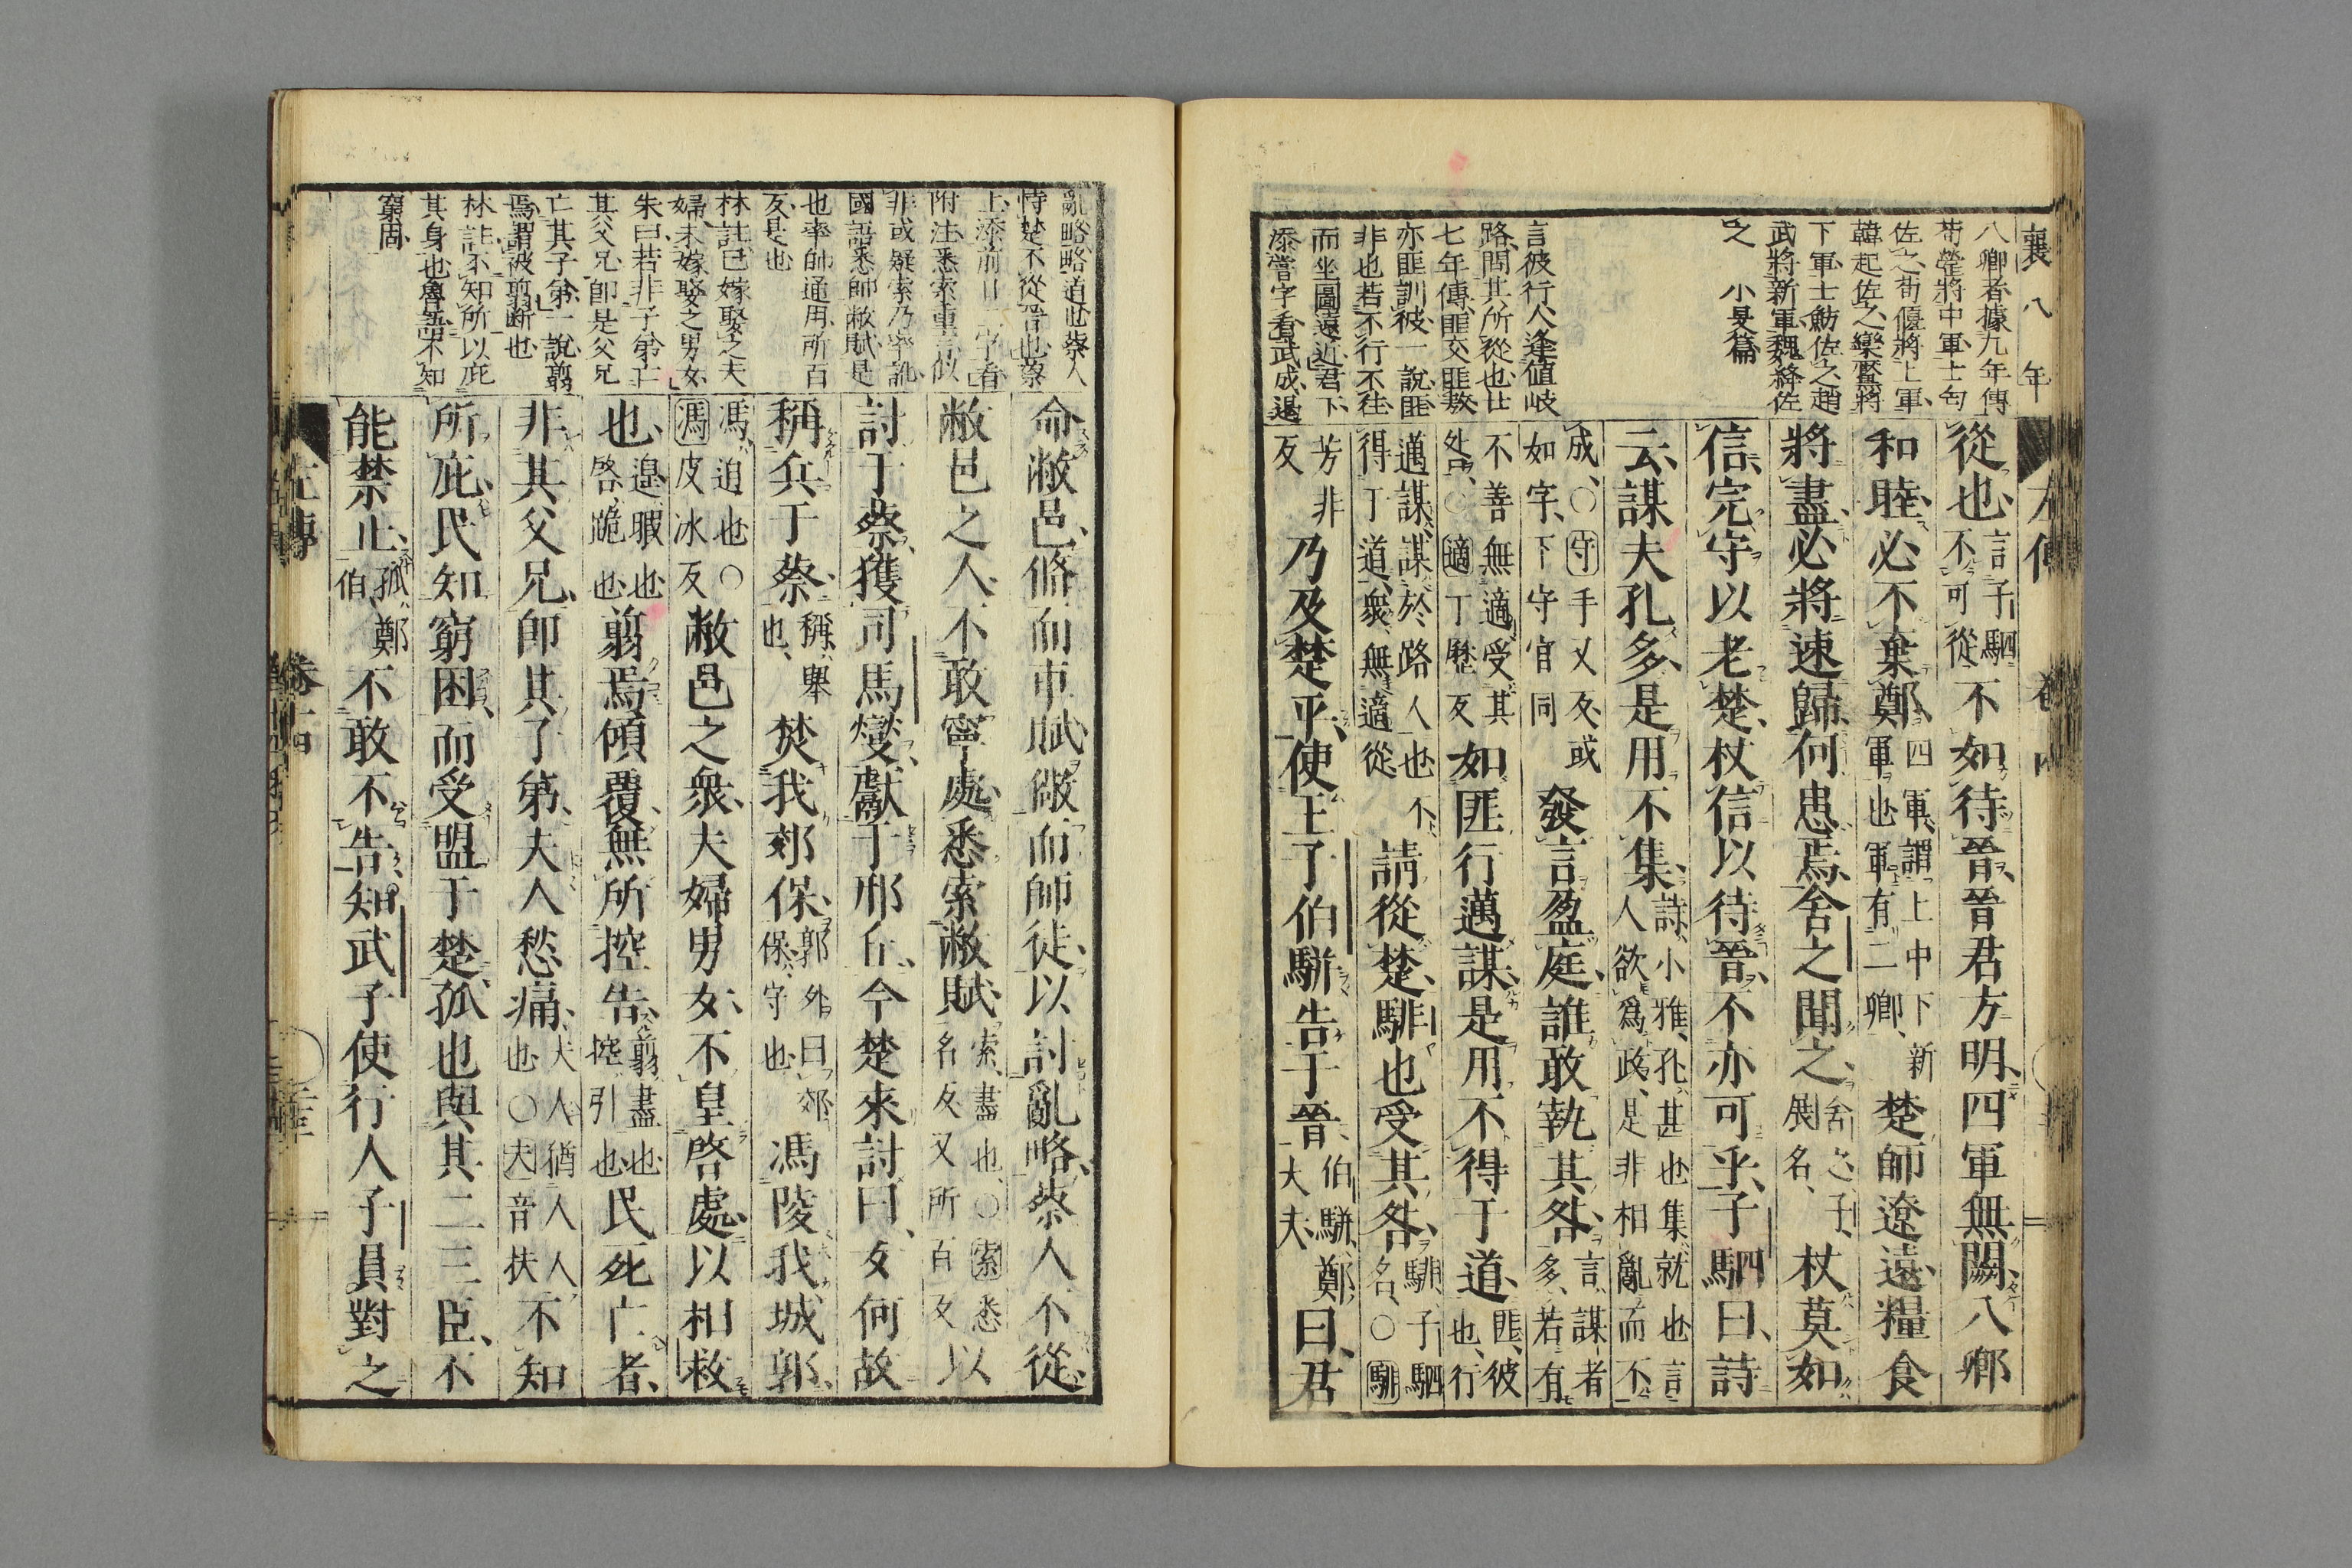 襄八年
八卿者據九年傳
荀罃將中軍士匄
佐之荀偃將上軍
韓起佐之欒黶將
下軍士魴佐之趙
武將新軍魏絳佐
之 小旻篇
言彼行人逢值岐
路問其所從也廿
七年傳匪交匪敖
亦匪訓彼一說匪
非也若不行不往
而坐圖遠近君下
添嘗字看武成退
左傳 卷十四
從也言子駟不可從不如待晉晉君方明四軍無闕八卿
和睦必不棄鄭四軍謂上中下新軍也軍有二卿楚師遼遠糧食
將盡必將速歸何患焉舍之聞之舍之子展名杖莫如
信完守以老楚杖信以待晉不亦可乎子駟曰詩
云謀夫孔多是用不集詩小雅孔甚也集就也言人欲爲政是非相亂而不
成〇守手又反或如字下守官同發言盈庭誰敢執其咎言謀者多若有
不善無適受其咎〇適丁歷反如匪行邁謀是用不得于道匪彼也行
邁謀謀於路人也不得丁道衆無適從請從楚騑也受其咎騑子駟名〇騑
芳非反乃及楚平使王子伯駢告于晉伯駢鄭大夫曰君
亂略略道也蔡人
恃楚不從晉也蔡
附注悉索重言似
非或疑索乃率訛
國語悉帥敝賦是
也率帥通用所百
反是也
林註已嫁娶之夫
婦未嫁娶之男女
朱曰若非子弟亡
其父兄卽是父兄
亡其子弟一說翦
焉謂被翦斷也
林註不知所以庇
其身也魯語不知
窮困
命敝邑脩而車賦儆而師徒以討亂略蔡人不從
敝邑之人不敢寧處悉索敝賦索盡也〇索悉名反又所百反以
討于蔡獲司馬燮獻于邢丘今楚來討曰女何故
稱兵于蔡稱舉也焚我郊保郭外曰郊保守也馮陵我城郭
馮迫也〇馮皮冰反敝邑之衆夫婦男女不皇啓處以相救
也遑暇也啓跪也翦焉傾覆無所控告翦盡也控引也民死亡者
非其父兄卽其子弟夫人愁痛夫人猶人人也〇夫音扶不知
所庇民知窮困而受盟于楚孤也與其二三臣不
能禁止孤鄭伯不敢不告知武子使行人子員對之
左傳 卷十四